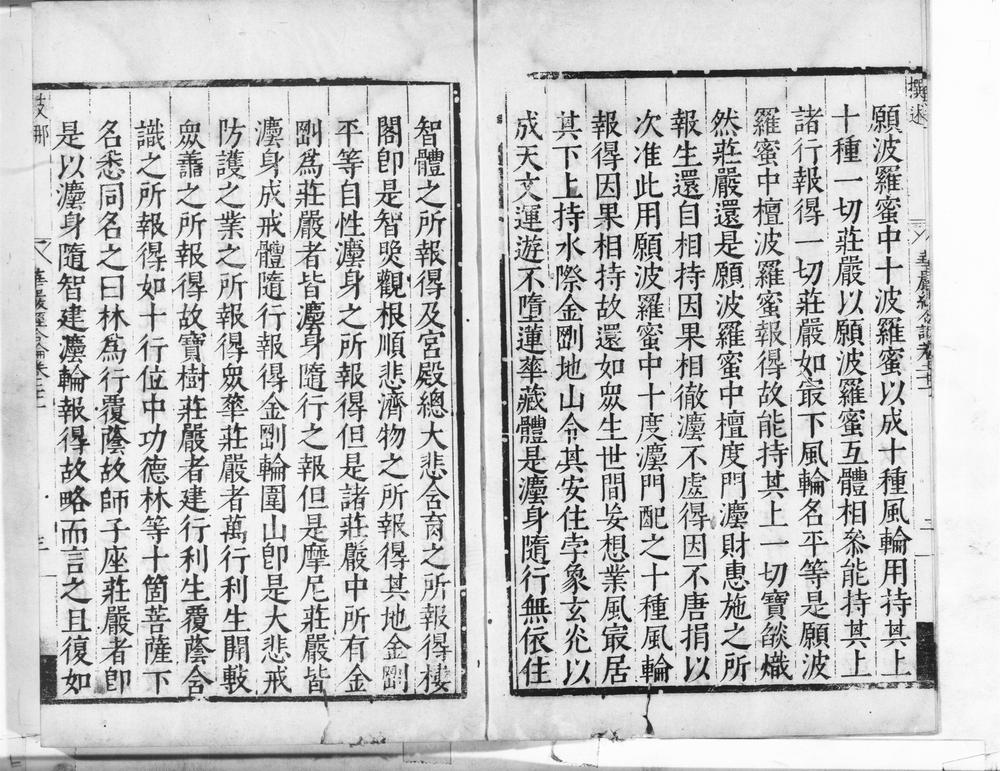 撰述
願波羅蜜中十波羅蜜以成十種風輪用持其上
十種一切莊嚴以願波羅蜜互體相叅能持其上
諸行報得一切莊嚴如㝡下風輪名平等是願波
羅蜜中檀波羅蜜報得故能持其上一切寶燄熾
然莊嚴還是願波羅蜜中檀度門灋財惠施之所
報生還自相持因果相徹灋不虗得因不唐捐以
次准此用願波羅蜜中十度灋門配之十種風輪
報得因果相持故還如眾生世間妄想業風㝡居
其下上持水際金剛地山令其安住孛象玄光以
成天文運遊不墮蓮華藏體是灋身隨行無依住
智體之所報得及宮殿總大悲含育之所報得樓
閣卽是智㷼觀根順悲濟物之所報得其地金剛
平等自性灋身之所報得但是諸莊嚴中所有金
剛爲莊嚴者皆灋身隨行之報但是摩尼莊嚴皆
灋身成戒體隨行報得金剛輪圍山卽是大悲戒
防護之業之所報得眾華莊嚴者萬行利生開敷
眾善之所報得故寶樹莊嚴者建行利生覆蔭含
識之所報得如十行位中功德林等十箇菩薩下
名悉同名之曰林爲行覆蔭故師子座莊嚴者卽
是以灋身隨智建灋輪報得故略而言之且復如